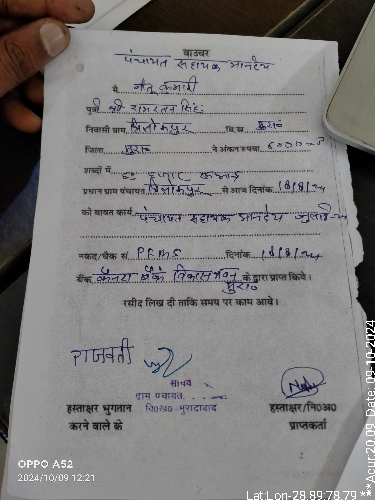 वाउचर
पंचायत सहायक मानदेय
मैं नीतू कुमारी
पुत्री श्री रामरतन सिंह
निवासी ग्राम त्रिलोकपुर वि.ख. मुरा०
जिला मुरा० ने अंकन रुपया 6000=00
शब्दों में छः हजार
प्रधान ग्राम पंचायत त्रिलोकपुर से आज दिनांक 18/9/24
को बाबत कार्य पंचायत सहायक मानदेय जुलाई
नकद/चेक सं. PFMS दिनांक 18/9/24
बैंक केनरा बैंक विकास भवन के द्वारा प्राप्त किये।
मुरा०
रसीद लिख दी ताकि समय पर काम आवे।
राजवती
सचिव
ग्राम पंचायत
वि०ख०-मुरादाबाद
हस्ताक्षर भुगतान
करने वाले के
हस्ताक्षर/नि०अ०
प्राप्तकर्ता
OPPO A52
2024/10/09 12:21
Lat:Lon-28.89:78.79
***Acur:20.09, Date: 09-10-2024